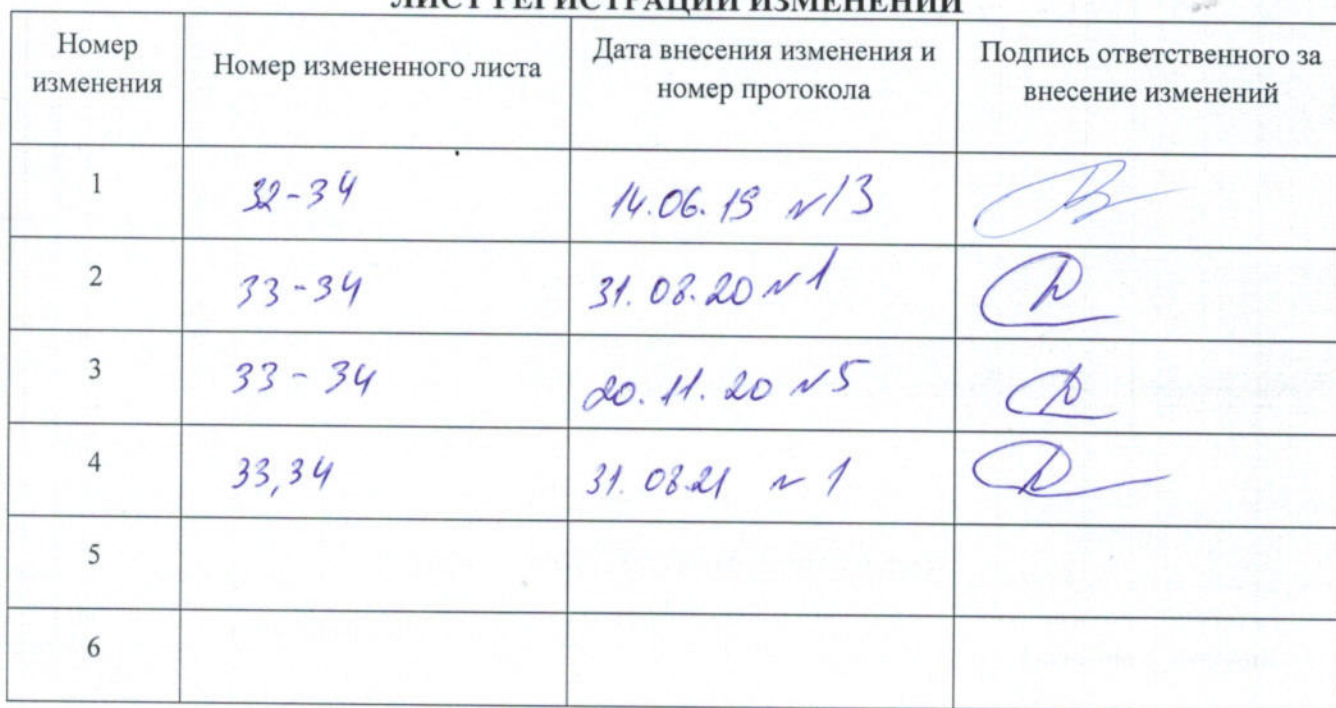 ЛИСТ РЕГИСТРАЦИИ ИЗМЕНЕНИЙ
Номер изменения
Номер измененного листа
Дата внесения изменения и номер протокола
Подпись ответственного за внесение изменений
1 32-34 14.06.19 №13
2 33-34 31.08.20 №1
3 33-34 20.11.20 №5
4 33,34 31.08.21 №1
5
6